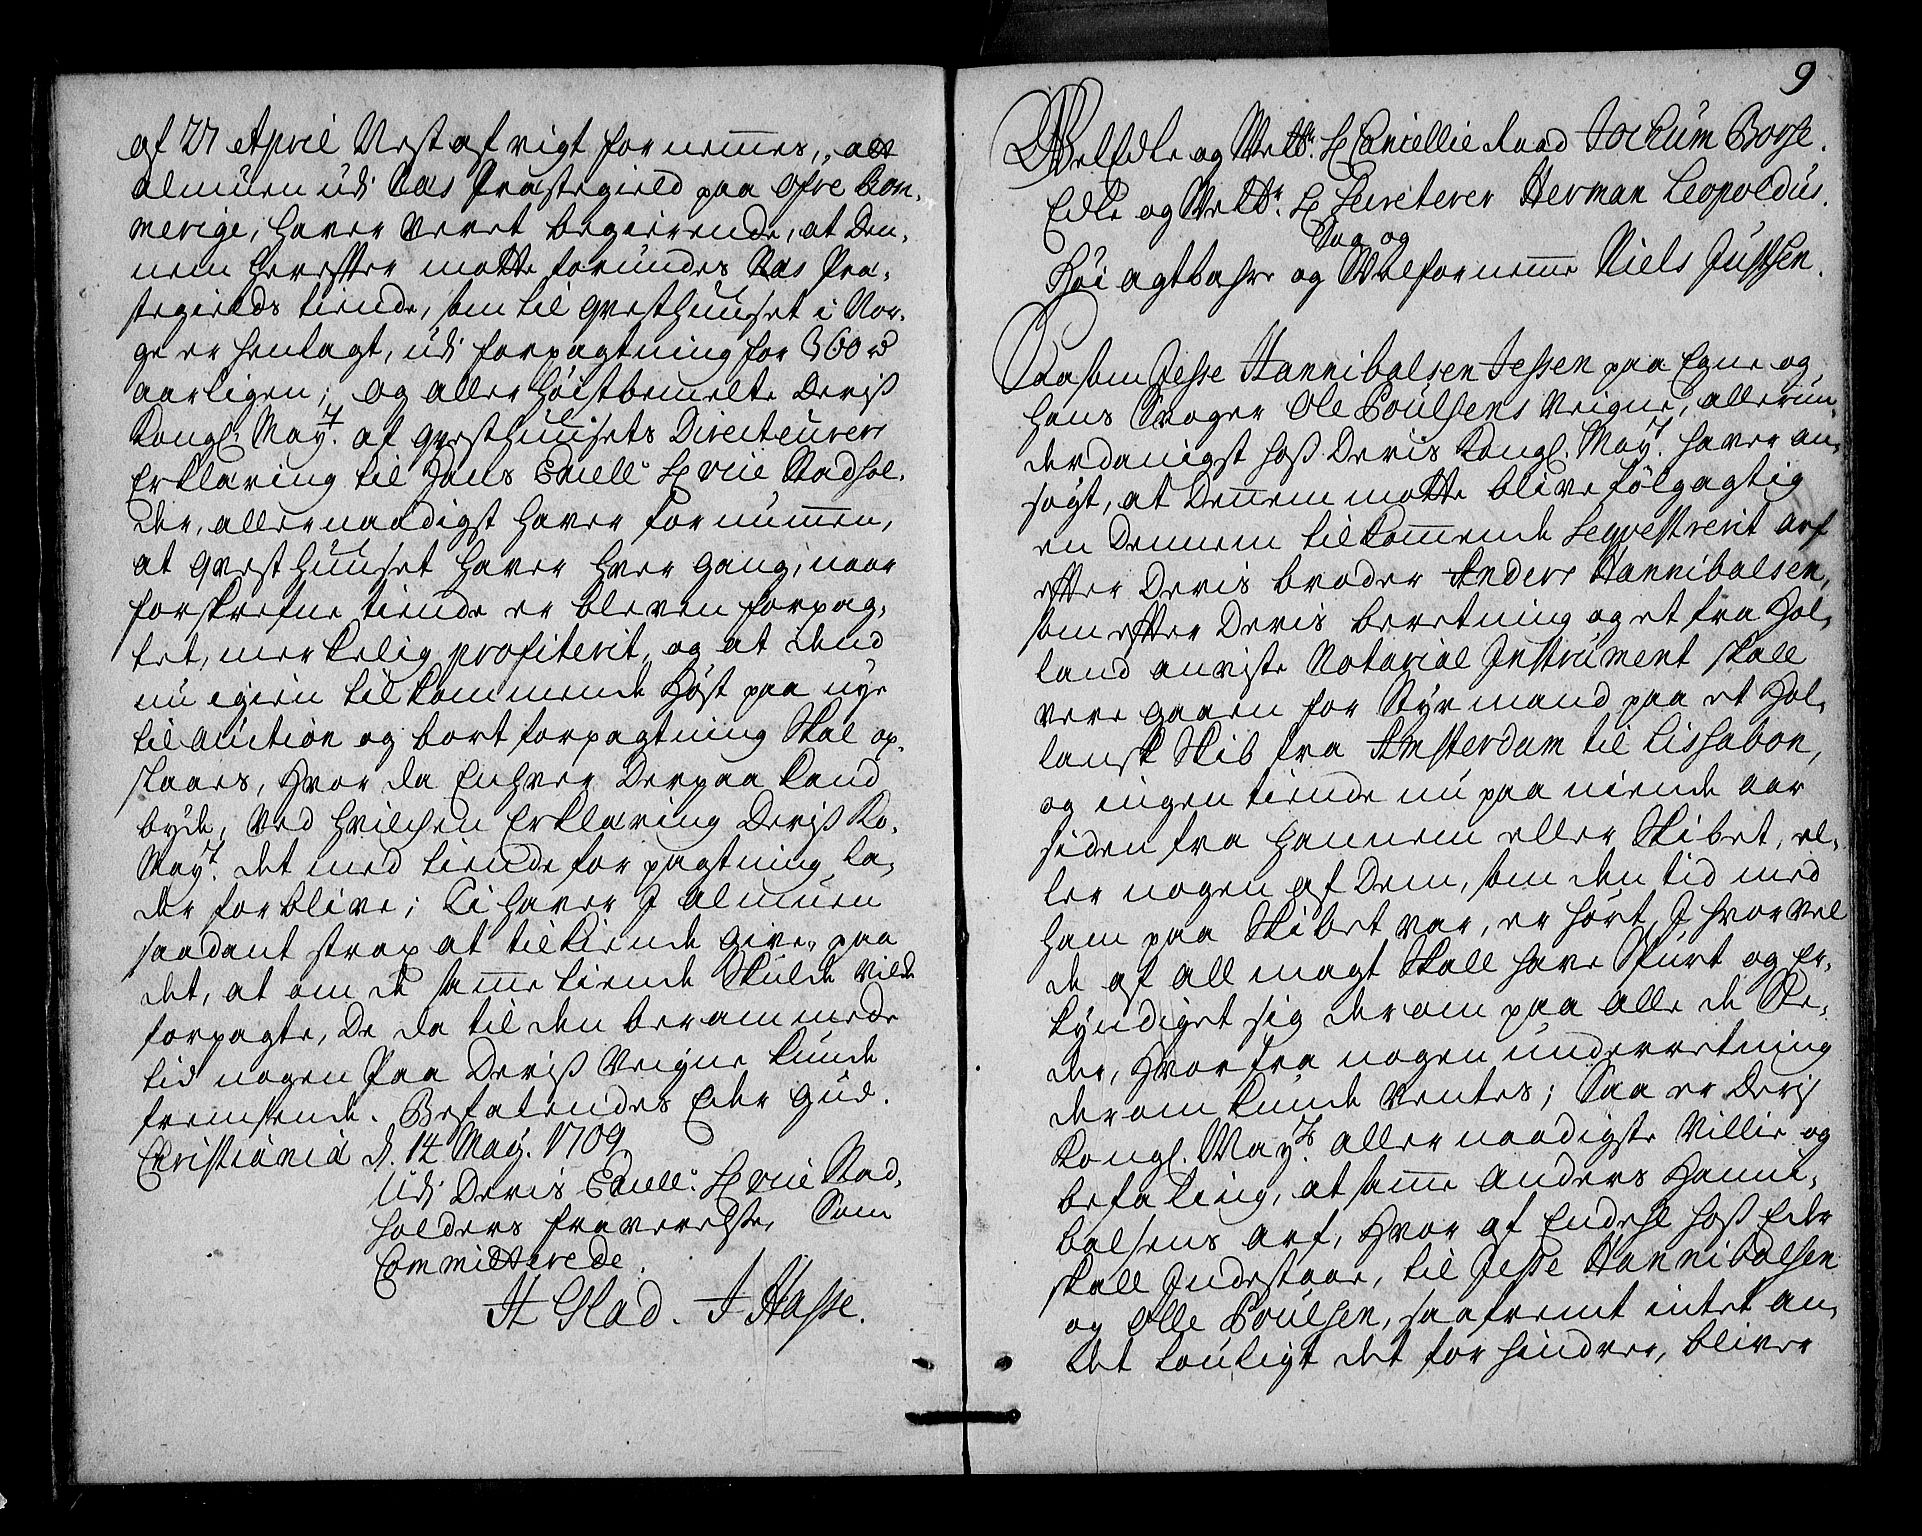 af 27 April Nest afvigt fornemmes, att
almuen udi Næs Præstegield paa Øfre Rom,
merige, haver veret begierende, at Den,
nem herefter motte forundes Næs Præ,
stegields tiende, som til qvesthuuset i Nor,
ge er henlagt, udi forpagtning for 360 rd
aarligen; og allerhøistbemelte Deriß
Kongl. May.t af qvesthuusets Directeurers
Erklæring til Hans Excell. H. vice Stadhol,
der, allernaadigst haver fornummen,
at qvesthuuset haver hver gang, naar
forskrefne tiende er bleven forpag,
tet, merkelig profiterit, og at dend
nu igien tilkommende Høst paa nye
til auction og bortforpagtning Skal op,
slaaes, Hvor da Enhver Derpaa kand
byde, ved hvilchen Erklæring Deriß Ko.
May.t det med tiende forpagtning la,
der forblive; Ti haver I almuen
saadant strax at tilkiende give, paa
det, at om de samme tiende Skulde vilde
forpagte, De da til den berammede
tid nogen Paa Deriß Veigne kunde
fremsende. Befalendes Eder Gud.
Christiania d. 14 May. 1709
Udi Deris Excell. H. vice Stad,
holders fraverelse, Som
Committerede.
H Glad. J Hasse.
9
Velædle og Velb. H. Cancellie Raad Jochum Borse.
Edle og Velb. H. Secreterer Herman Leopoldus.
Sag og
Høi agtbahre og Velfornemme Niels Justsen.
Saasom Jesse Hannibalsen Jessen paa Egne og
hans Svoger Ole Poulsens Veigne, allerun,
derdanigst hoß Deris Kongl. May.t haver an,
søgt, at Dennem motte blive følgagtig
en Dennem tilkommende Seqvestrerit arf
efter Deris broder Anders Hannibalsen,
som efter Deris beretning og et fra Hol,
land anviste Notarial Instrument skall
vere gaaen for Styrmand paa et Hol,
lansk Skib fra Amsterdam til Lissabon,
og ingen tiende nu paa niende aar
siden fra hannem eller Skibet, el,
ler nogen af Dem, som den tid med
ham paa Skibet var, er hørt, I hvorvel
de af all magt Skall have Spurt og er,
kyndiget sig derom paa alle de Ste,
der, Hvorfra nogen underretning
derom kunde ventes; Saa er Deris
Kongl. May.ts allernaadigste Villie og
befaling, at samme Anders Hanni,
balsens arf, Hvor af Endehl hoß Eder
skall Indestaae, til Jesse Hannibalsen
og Olle Poulsen, saafremt intet an,
det louligt det forhindrer, bliver